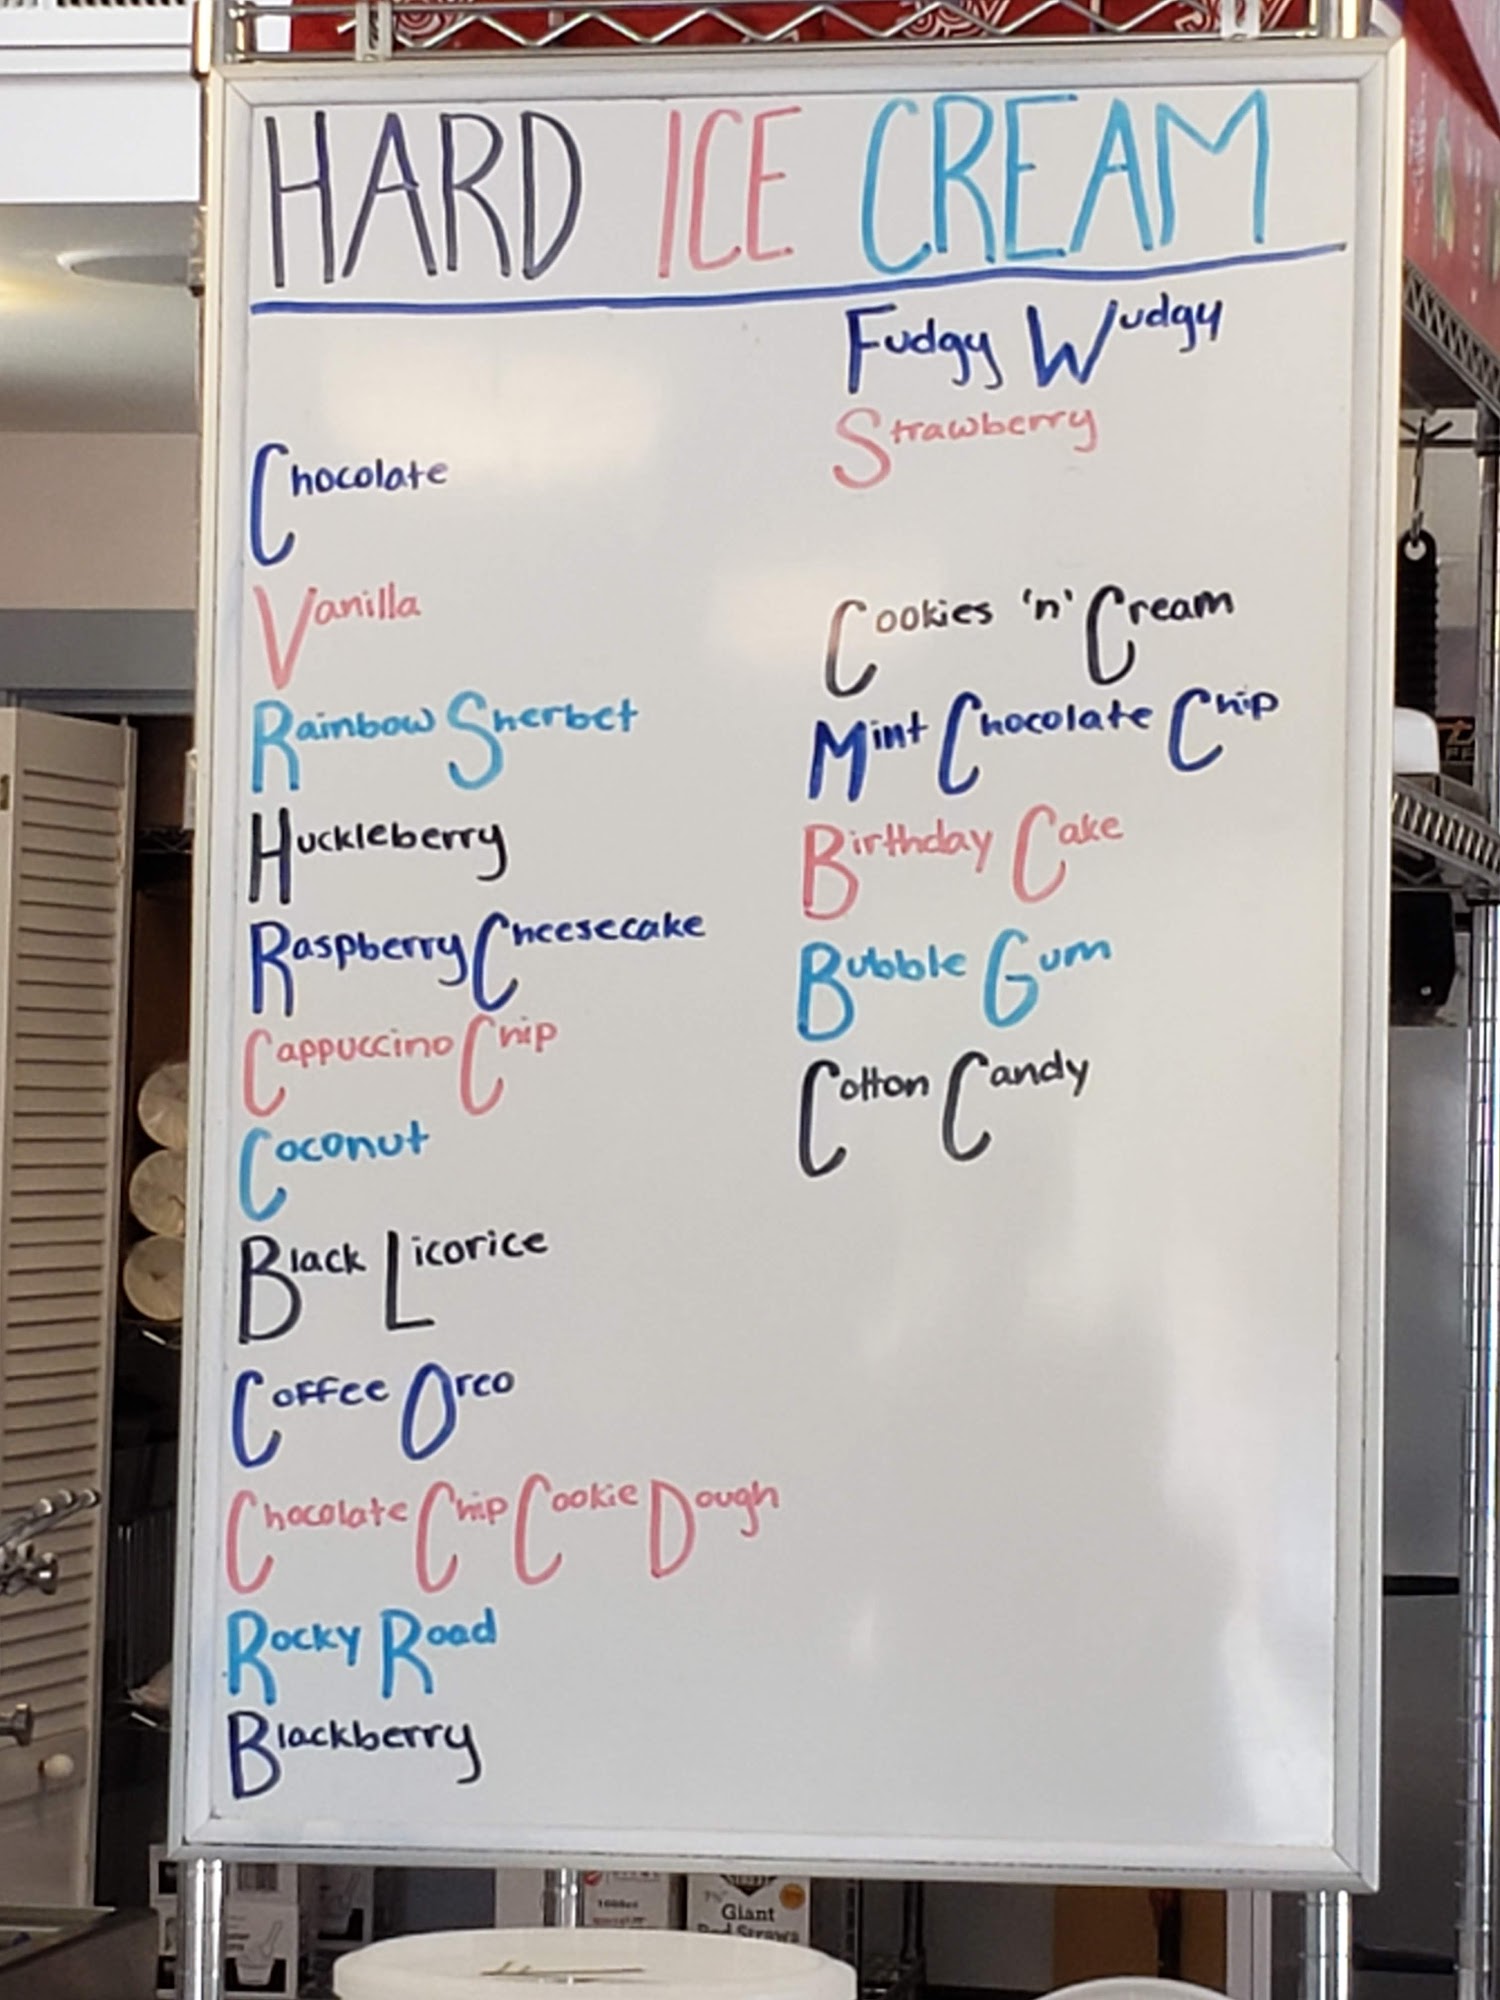 HARD ICE CREAM
Chocolate
Vanilla
Rainbow Sherbet
Huckleberry
Raspberry Cheesecake
Cappuccino Chip
Coconut
Black Licorice
Coffee Oreo
Chocolate Chip Cookie Dough
Rocky Road
Blackberry
Fudgy Wudgy
Strawberry
Cookies 'n' Cream
Mint Chocolate Chip
Birthday Cake
Bubble Gum
Cotton Candy
Giant
Red Straws